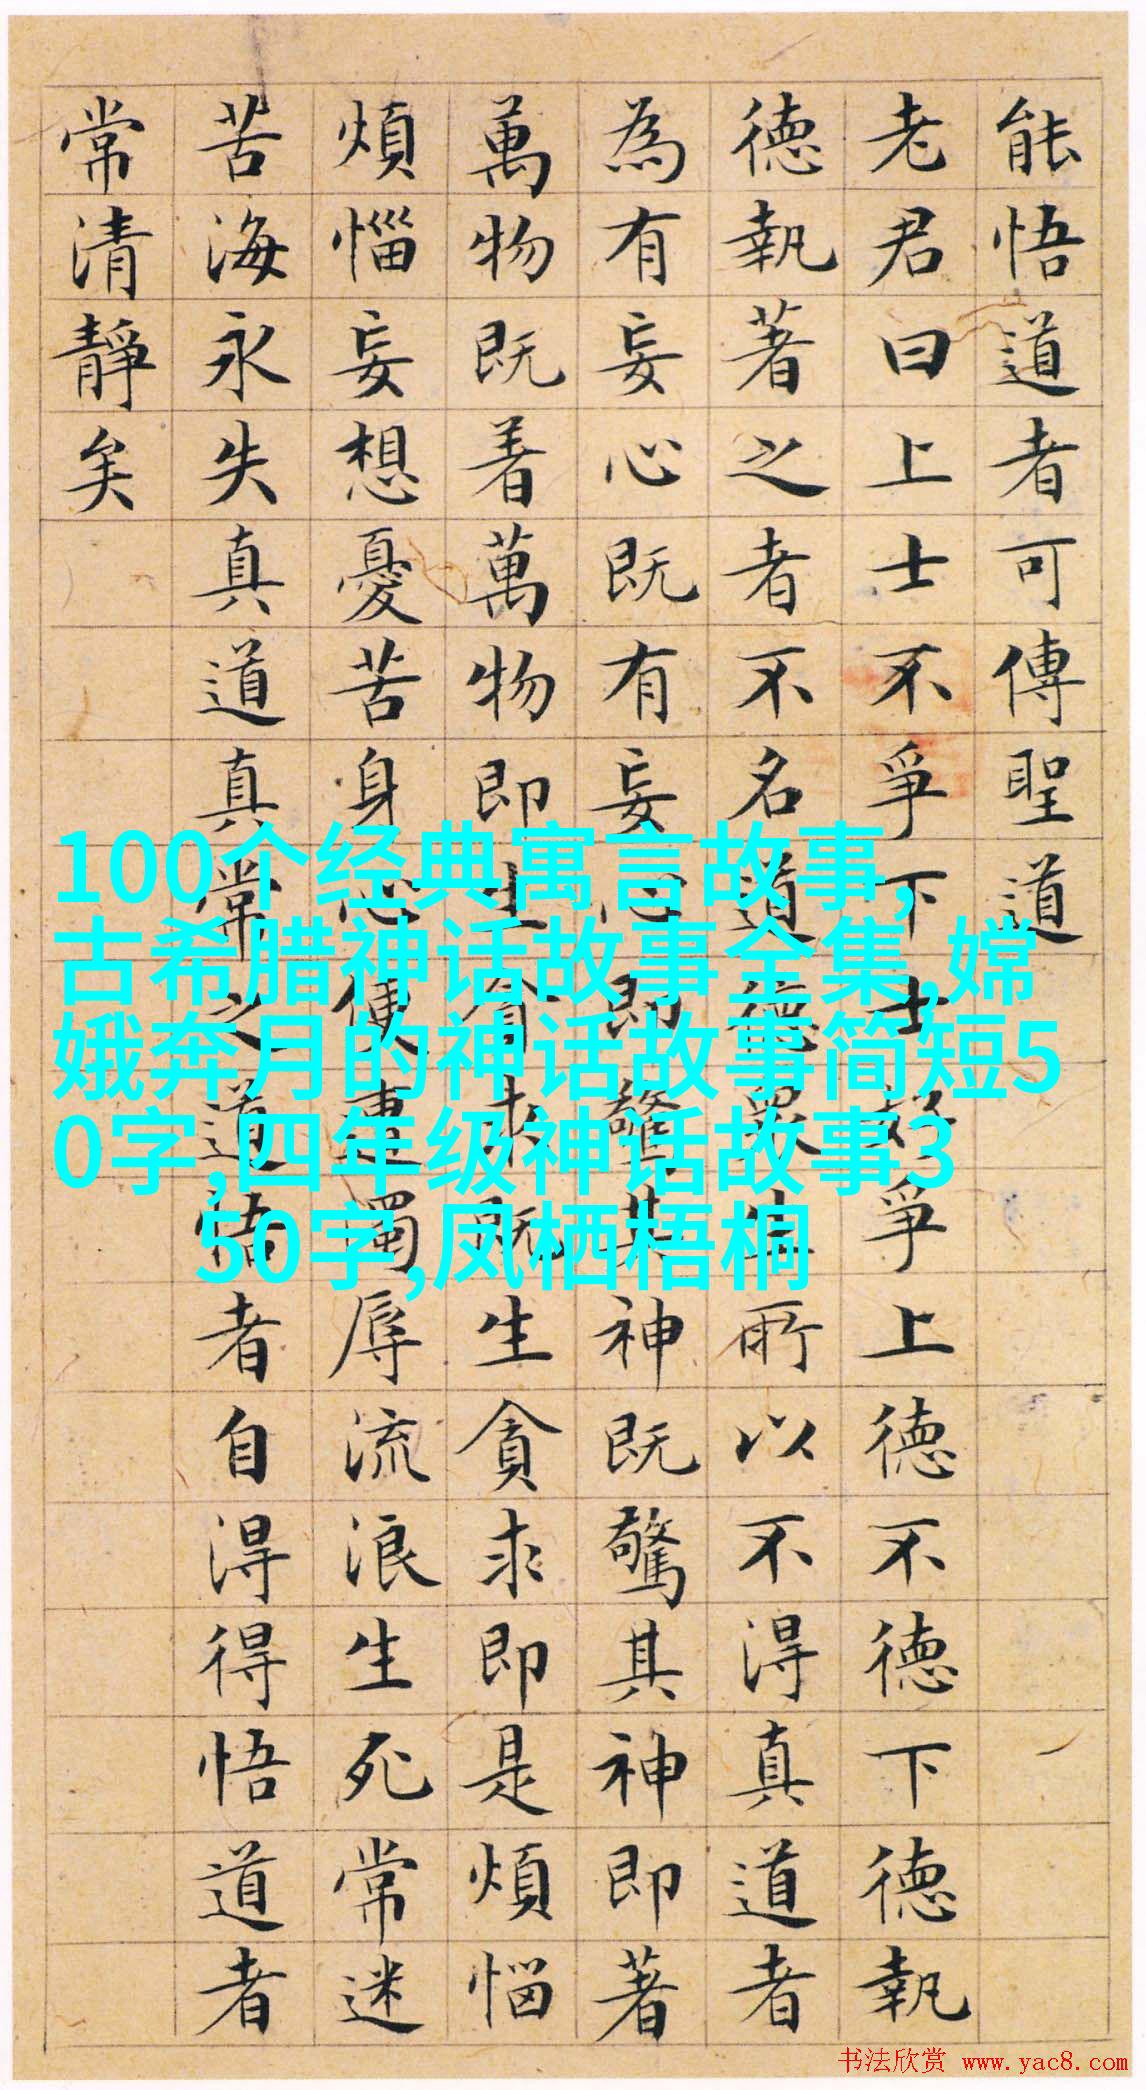 能悟道者可傳聖道
老君曰上士不爭下士好爭上德不德下德執
德執著之者不名道德眾生所以不得真道者
為有妄心既有妄心即驚其神既驚其神即著
萬物既着萬物即生貪求既生貪求即是煩惱
煩惱妄想憂苦身心便遭濁辱流浪生死常迷
苦海永失真道真常之道悟者自得得悟道者
常清靜矣
100个经典寓言故事,
古希腊神话故事全集,嫦
娥奔月的神话故事简短5
0字,四年级神话故事3
50字,凤栖梧桐
书法欣赏 www.yac8.com